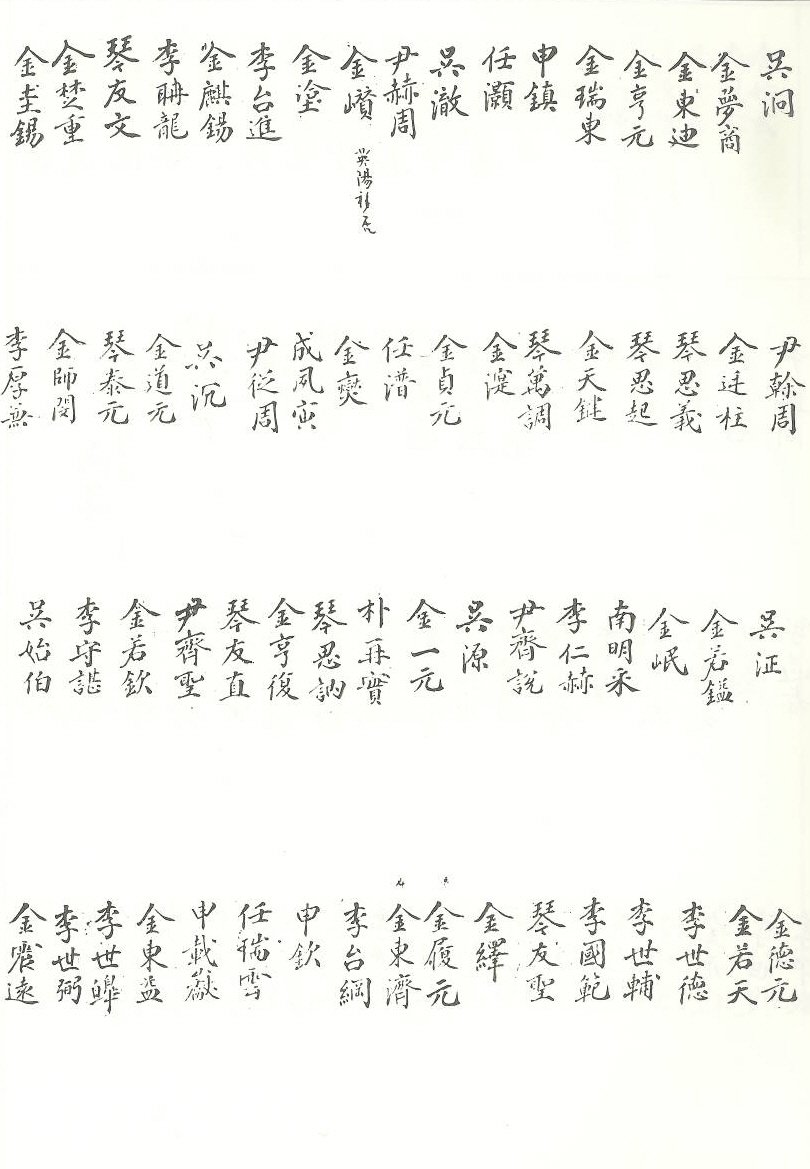 吳泂
金夢商
金東迪
金亨元
金瑞東
申鎮
任灝
吳澈
尹赫周
金巑
英陽移居
金塗
李台進
金麒錫
李聃龍
琴友文
金楚重
金圭錫
尹榦周
金廷柱
琴思義
琴思起
金天鍵
琴萬調
金渷
金貞元
任濳
金爕
成夙寅
尹從周
吳沉
金道元
琴泰元
金師閔
李厚
吳泟
金若鎰
金岷
南明采
李仁赫
尹齊說
吳源
金一元
朴再實
琴思訥
金亨復
琴友直
尹齊聖
金若欽
李守諶
吳始伯
金德元
金若天
李世德
李世輔
李國範
琴友聖
金繹
金履元
金東濟
李台綱
申欽
任瑞雪
申載嶽
金東益
李世皥
李世弼
金遠